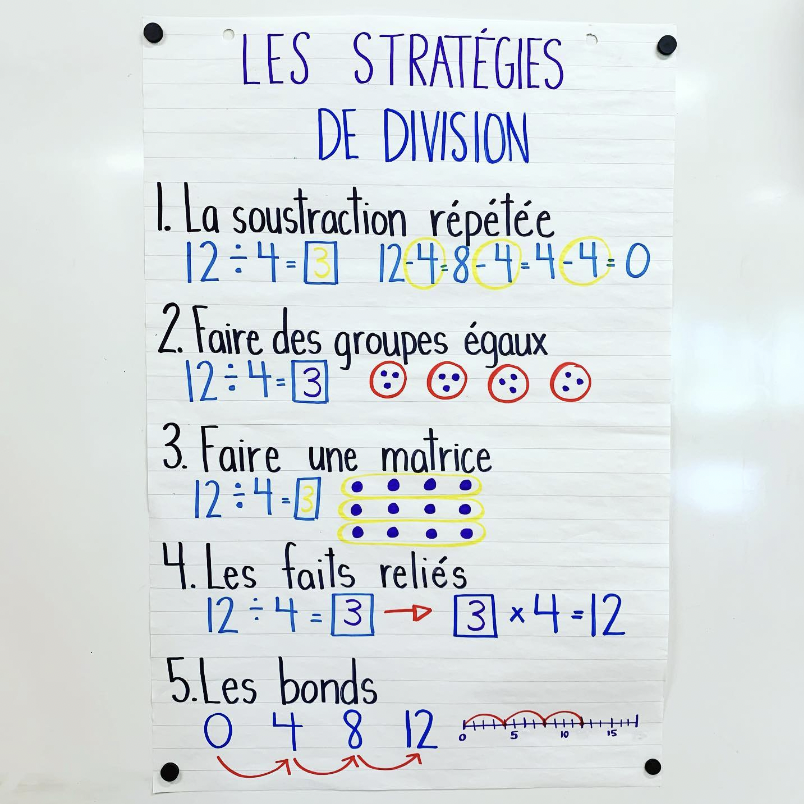 LES STRATÉGIES
DE DIVISION
1. La soustraction répétée
12 ÷ 4 = 3 12-4=8-4=4-4=0
2. Faire des groupes égaux
12 ÷ 4 = 3
3. Faire une matrice
12 ÷ 4 = 3
4. Les faits reliés
12 ÷ 4 = 3 → 3 × 4 = 12
5. Les bonds
0 4 8 12 0 5 10 15